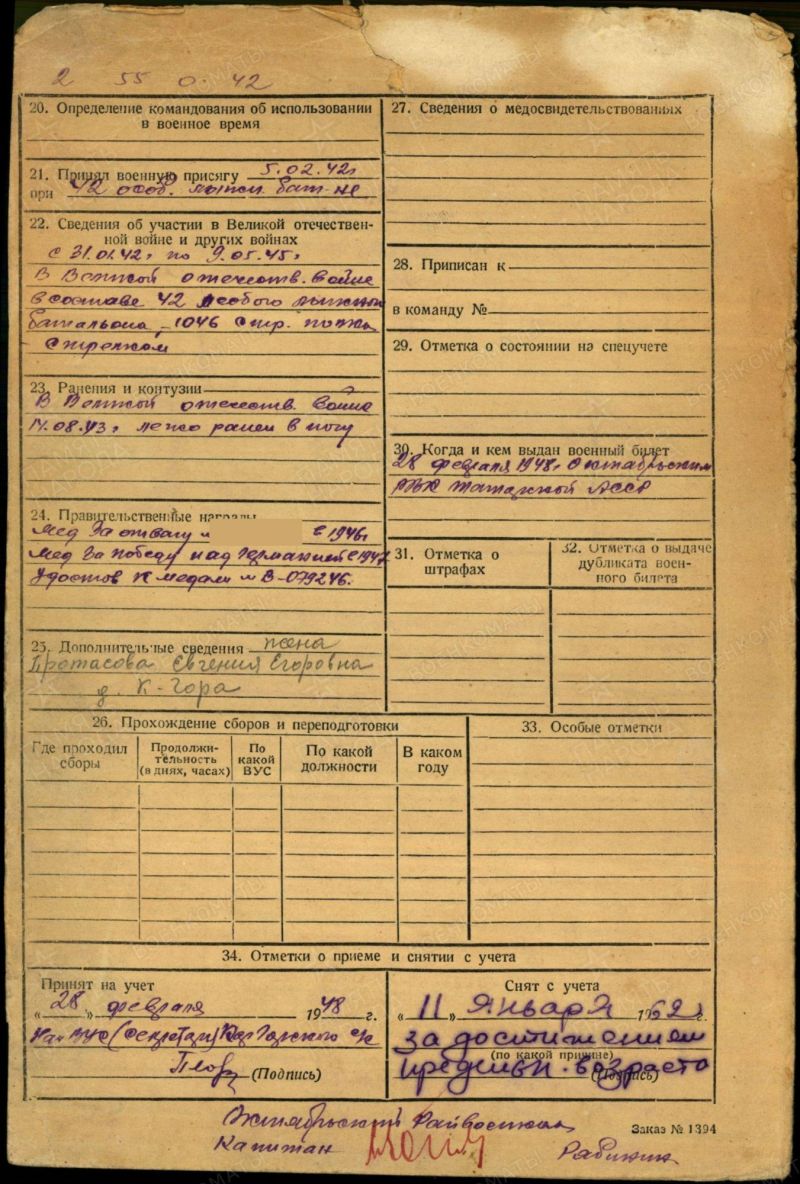 2 55 0. 42
20. Определение командования об использовании
в военное время
21. Принял военную присягу 5.02.42г
при 42 особ. лыжн бат-не
22. Сведения об участии в Великой отечествен-
ной войне и других войнах
с 31.01.42г по 9.05.45г
В Великой отечеств. войне
в составе 42 особого лыжного
батальона, 1046 стр. полка
Стрелком
23. Ранения и контузии
В Великой отечеств. войне
14.08.43г легко ранен в ногу
24. Правительственные награды
мед За отвагу и с 1946г
мед За победу над Германией с 1947
Удостов к медали № В-079246.
25. Дополнительные сведения жена
Протасова Евгения Егоровна
д. К-Гора
26. Прохождение сборов и переподготовки
Где проходил
сборы
Продолжи-
тельность
(в днях, часах)
По
какой
ВУС
По какой
должности
В каком
году
27. Сведения о медосвидетельствованиях
28. Приписан к
в команду №
29. Отметка о состоянии на спецучете
30. Когда и кем выдан военный билет
28 февраля 1948г Октябрьским
РВК Татарской АССР
31. Отметка о
штрафах
32. Отметка о выдаче
дубликата воен-
ного билета
33. Особые отметки
34. Отметки о приеме и снятии с учета
Принят на учет
„28" февраля 1948 г.
(секретарь)
(Подпись)
Снят с учета
„11" Января 1962 г.
за достижением
(по какой причине)
предельн. возраста
(Подпись)
Октябрьский Райвоенком
Капитан
Заказ № 1394